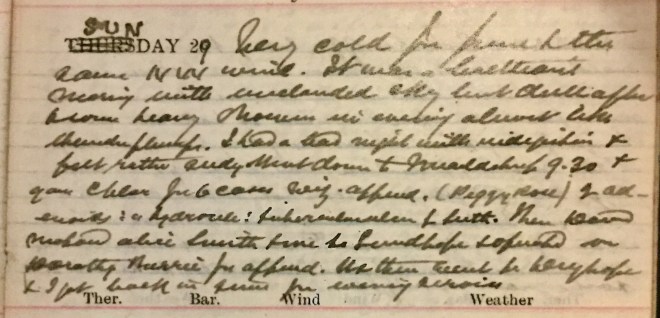 SUN
THURSDAY 29 Very cold for June & the
same NW wind. It was a brilliant
morning with unclouded sky but dull after
& some heavy showers in evening almost like
thunderplumps. I had a bad night with indigestion &
felt rather seedy but went down to 9-30 &
gave Chlor for 6 cases viz. append. (Peggy Rose) 2 ad-
enoids: a hydrocele: & teeth. Then David
Alice Smith & operated on
Dorothy for append. We then went to
& I got back in time for evening service
Ther. Bar. Wind Weather